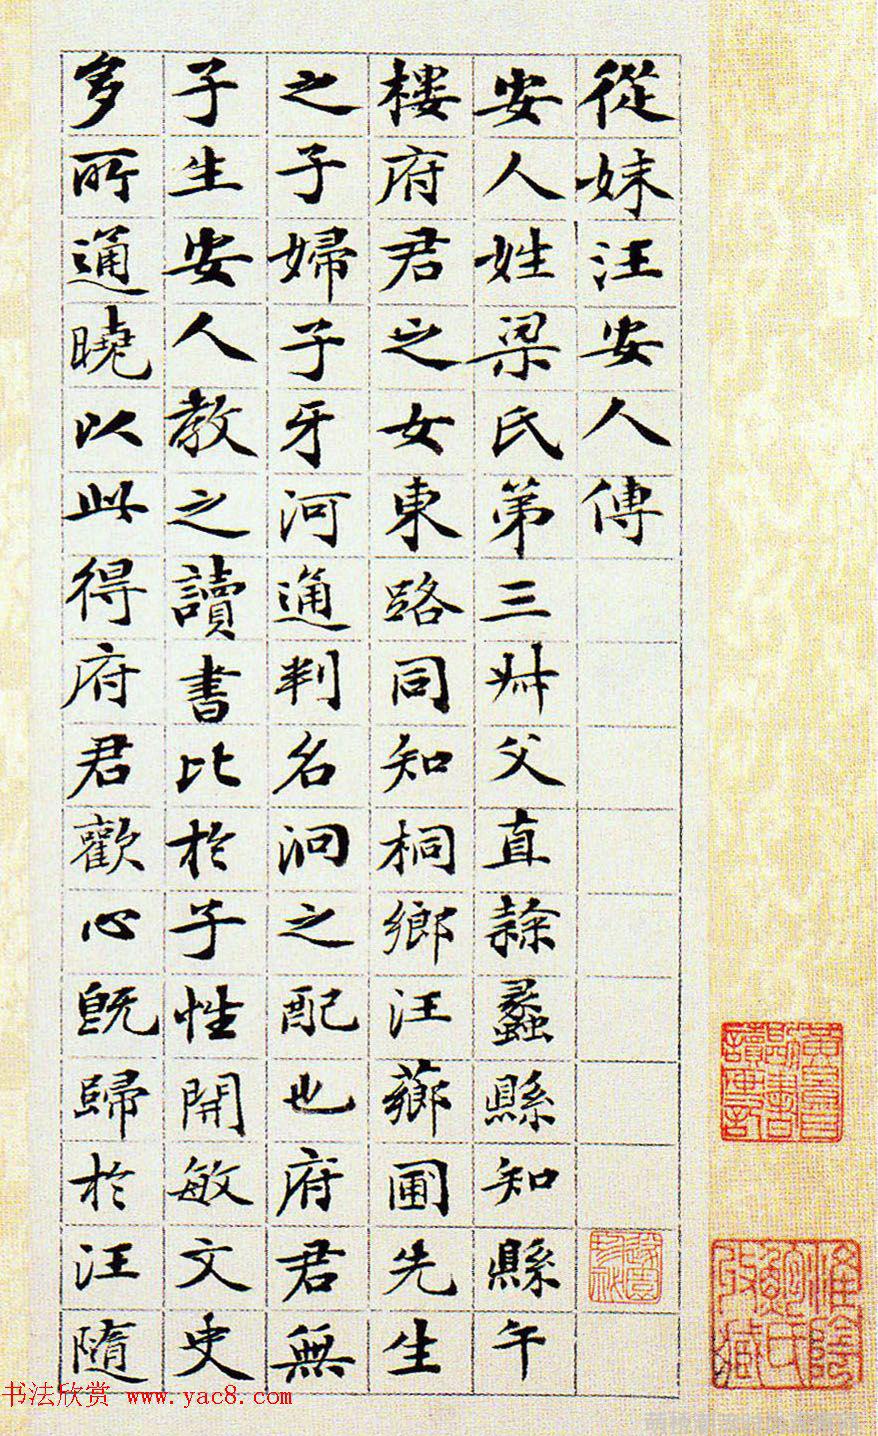 從妹汪安人傳
安人姓梁氏第三卌父直隸蠡縣知縣午
樓府君之女東路同知桐鄉汪薌圃先生
之子婦子牙河通判名泂之配也府君無
子生安人教之讀書比於子性開敏文史
多所通曉以此得府君歡心既歸於汪隨
书法欣赏 www.yac8.com